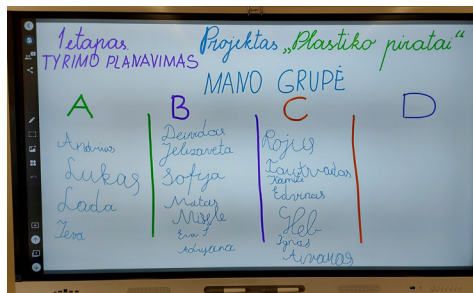 1 etapas.
TYRIMO PLANAVIMAS
Projektas „Plastiko piratai"
MANO GRUPĖ
A
Andrius
Lukas
Lada
Ieva
B
Deividas
Jelizaveta
Sofija
Matas
Adrijana
C
Rojus
Tautvydas
Edvinas
Gleb
Ignas
Aivaras
D